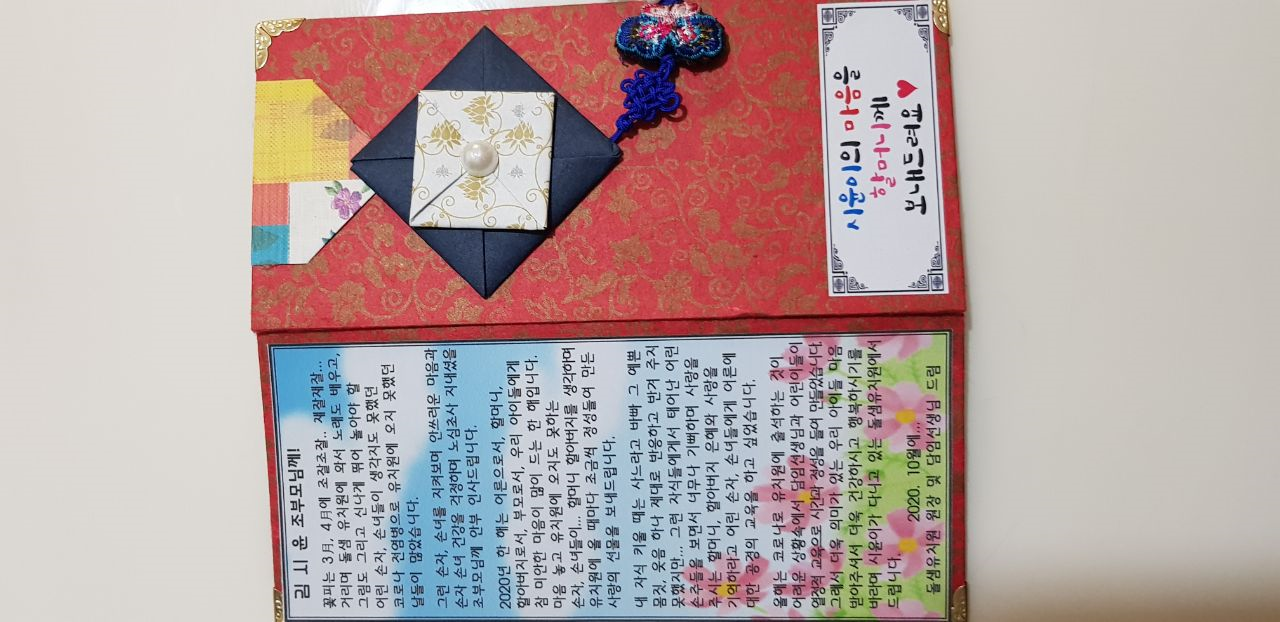 시윤이의 마음을
할머니께
보내드려요
김 시 윤 조부모님께!
꽃피는 3월, 4월에 조잘조잘.. 재잘재잘...
거리며 돌샘 유치원에 와서 노래도 배우고,
그림도 그리고 신나게 뛰어 놀아야 할
어린 손자, 손녀들이 생각지도 못했던
코로나 전염병으로 유치원에 오지 못했던
날들이 많았습니다.
그런 손자, 손녀를 지켜보며 안쓰러운 마음과
손자 손녀 건강을 걱정하며 노심초사 지내셨을
조부모님께 안부 인사드립니다.
2020년 한 해는 어른으로서, 할머니,
할아버지로서, 부모로서, 우리 아이들에게
참 미안한 마음이 많이 드는 한 해입니다.
마음 놓고 유치원에 오지도 못하는
손자, 손녀들이... 할머니 할아버지를 생각하며
유치원에 올 때마다 조금씩 정성들여 만든
사랑의 선물을 보내드립니다.
내 자식 키울 때는 사느라고 바빠 그 예쁜
몸짓, 웃음 하나 제대로 반응하고 반겨 주지
못했지만... 그런 자식들에게서 태어난 어린
손주들을 보면서 너무나 기뻐하며 사랑을
주시는 할머니, 할아버지 은혜와 사랑을
기억하라고 어린 손자, 손녀들에게 어른에
대한 공경의 교육을 하고 싶었습니다.
올해는 코로나로 유치원에 출석하는 것이
어려운 상황속에서 담임선생님과 어린이들이
열정적 교육으로 시간과 정성을 들여 만들었습니다.
그래서 더욱 의미가 있는 우리 아이들 마음
받아주셔서 더욱 건강하시고 행복하시기를
바라며 시윤이가 다니고 있는 돌샘유치원에서
드립니다.
2020. 10월에...
돌샘유치원 원장 및 담임선생님 드림